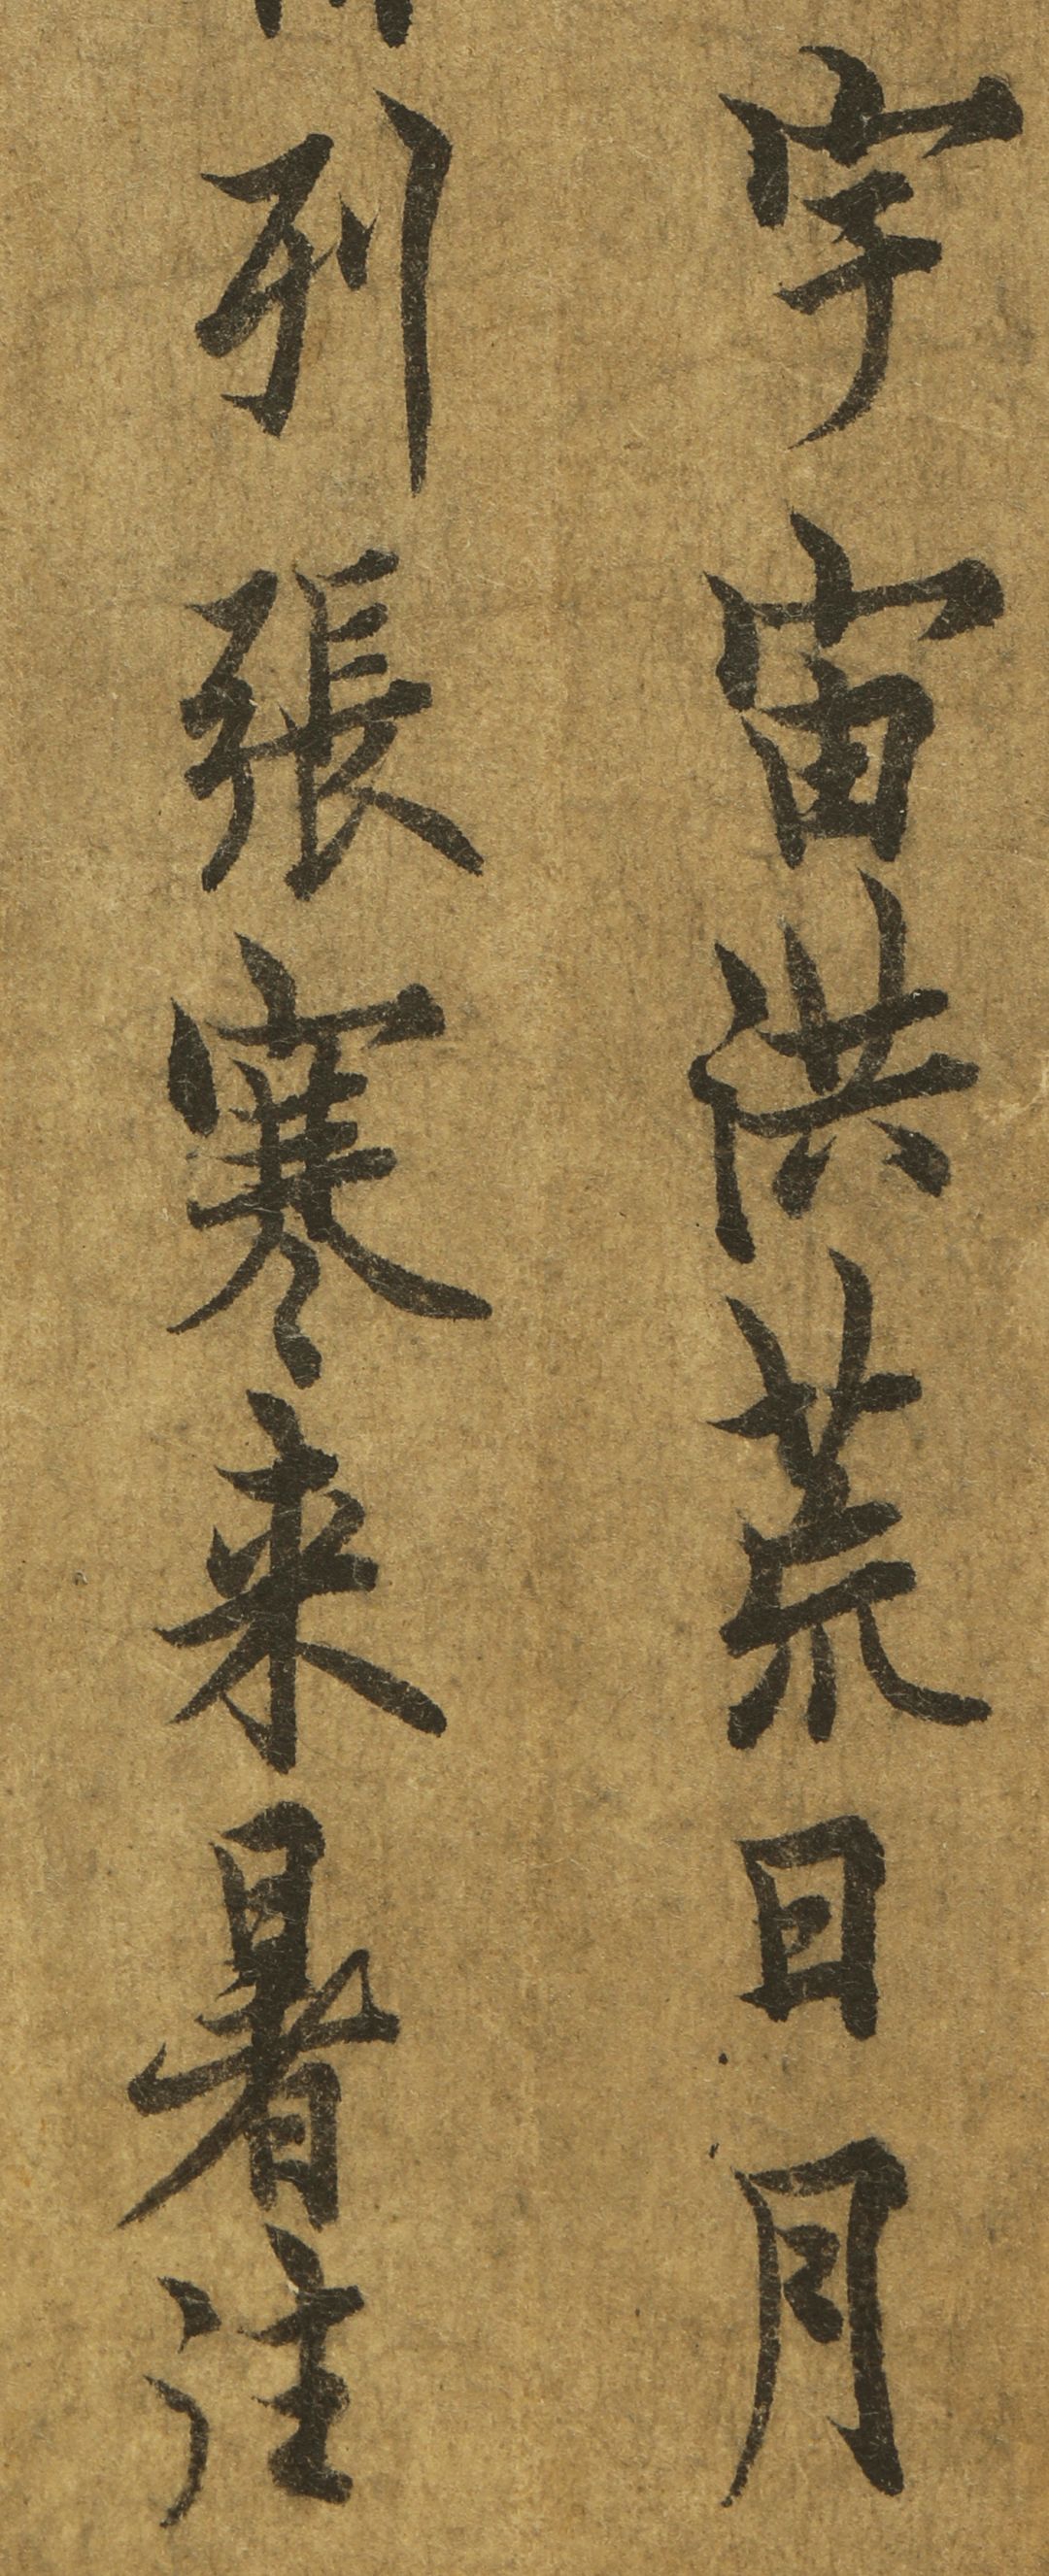 宇宙洪荒日月
列張寒来暑往